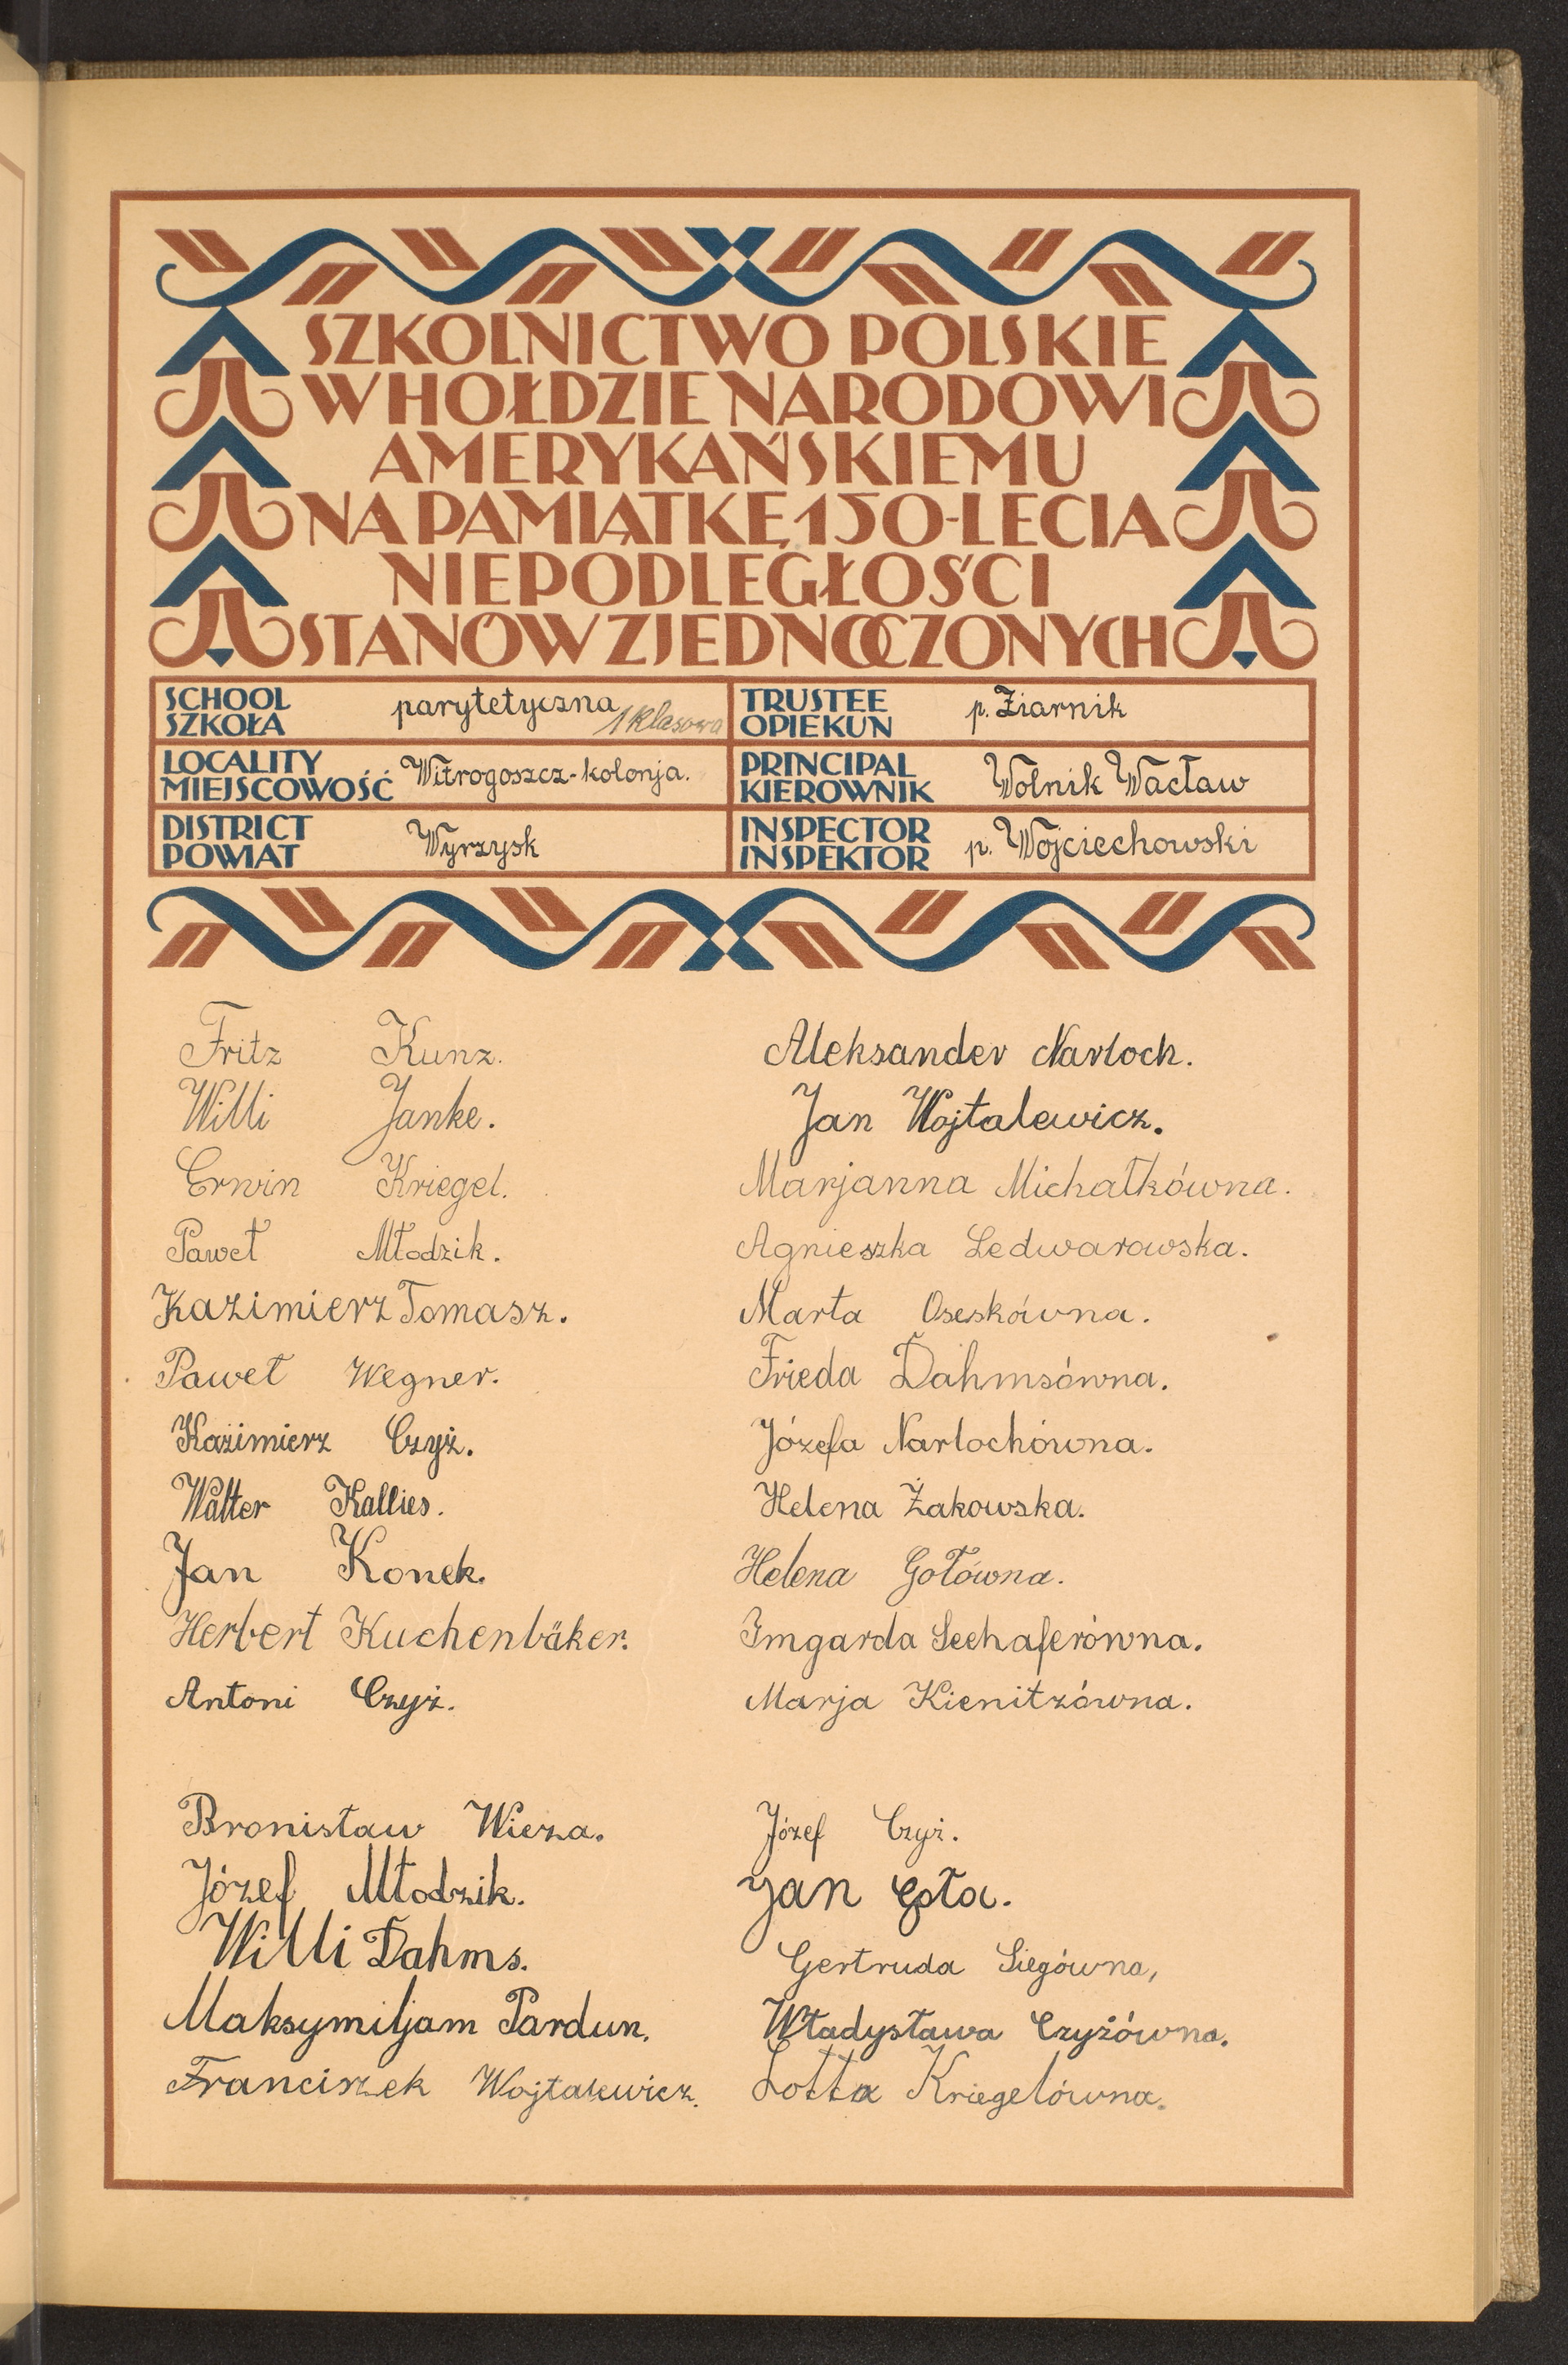 SZKOLNICTWO POLSKIE
W HOŁDZIE NARODOWI
AMERYKAŃSKIEMU
NA PAMIĄTKĘ 150-LECIA
NIEPODLEGŁOŚCI
STANÓW ZJEDNOCZONYCH
SCHOOL
SZKOŁA
parytetyczna 1 klasowa
TRUSTEE
OPIEKUN
p. Ziarnik
LOCALITY
MIEJSCOWOŚĆ
Witrogoszcz-kolonja.
PRINCIPAL
KIEROWNIK
Wolnik Wacław
DISTRICT
POWIAT
Wyrzysk
INSPECTOR
INSPEKTOR
p. Wojciechowski
Fritz Kunz.
Willi Janke.
Erwin Kriegel.
Paweł Młodzik.
Kazimierz Tomasz.
Paweł Wegner.
Kazimierz Czyż.
Walter Kallies.
Jan Konek.
Herbert Kuchenbäker.
Antoni Czyż.
Bronisław Wieza.
Józef Młodzik.
Willi Dahms.
Maksymiljam Pardun.
Franciszek Wojtalewicz.
Aleksander Narloch.
Jan Wojtalewicz.
Marjanna Michałkówna.
Agnieszka Ledwarowska.
Marta Oseskówna.
Frieda Dahmsówna.
Józefa Narlochówna.
Helena Żakowska.
Helena Gołówna.
Imgarda Seehaferówna.
Marja Kienitzówna.
Józef Czyż.
Jan Goła.
Gertruda Siegówna,
Władysława Czyżówna.
Lotta Kriegelówna.